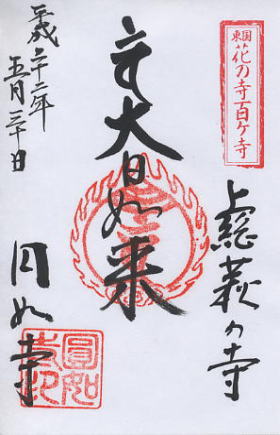 東国
花の寺百ケ寺
上総萩の寺
大日如来
平成二十二年
五月三十日
円如寺
圓如寺印